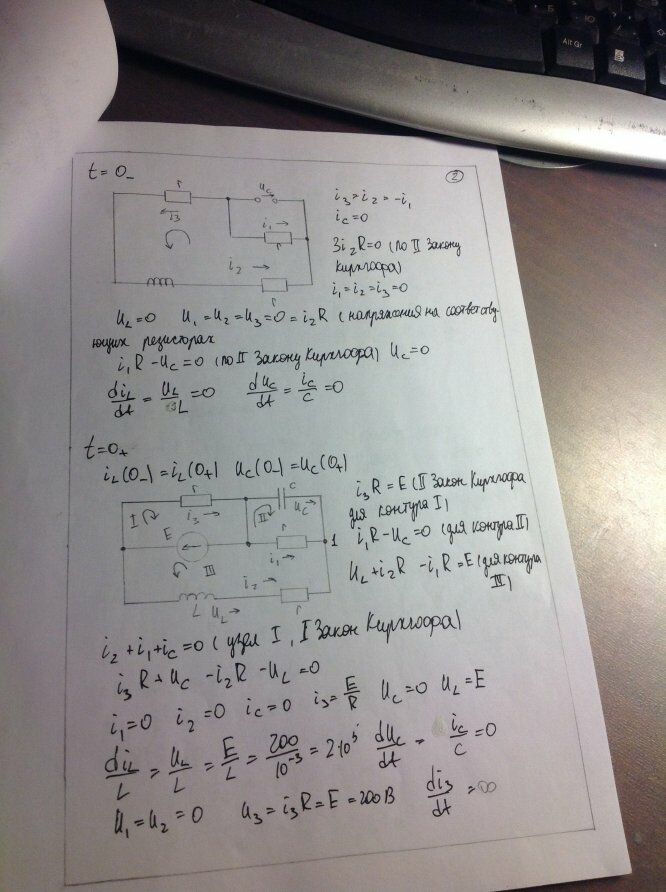 Alt Gr
②
t = 0₋
r
u_C
i₃
i₁ →
r
i₂ →
r
i₃ = i₂ = -i₁
i_C = 0
3i₂R = 0 (по II Закону
Кирхгофа)
i₁ = i₂ = i₃ = 0
u_L = 0 u₁ = u₂ = u₃ = 0 = i₂R (напряжения на соответству-
ющих резисторах
i₁R - u_C = 0 (по II Закону Кирхгофа) u_C = 0
di_L/dt = u_L/L = 0 du_C/dt = i_C/C = 0
t = 0₊
i_L(0₋) = i_L(0₊) u_C(0₋) = u_C(0₊)
r
C
I
i₃ →
II
u_C
E
r
1
III
i₁ →
i₂ →
L u_L →
r
i₃R = E (II Закон Кирхгофа
для контура I)
i₁R - u_C = 0 (для контура II)
u_L + i₂R - i₁R = E (для контура
III)
i₂ + i₁ + i_C = 0 (узел I, I Закон Кирхгофа)
i₃R + u_C - i₂R - u_L = 0
i₁ = 0 i₂ = 0 i_C = 0 i₃ = E/R u_C = 0 u_L = E
di_L/L = u_L/L = E/L = 200/10⁻³ = 2·10⁵ du_C/dt = i_C/C = 0
u₁ = u₂ = 0 u₃ = i₃R = E = 200 В di₃/dt = ∞